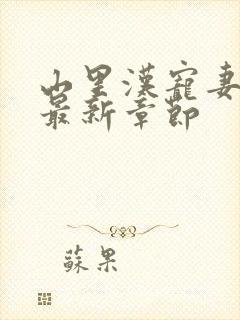 山里漢寵妻
最新章節
蘇果